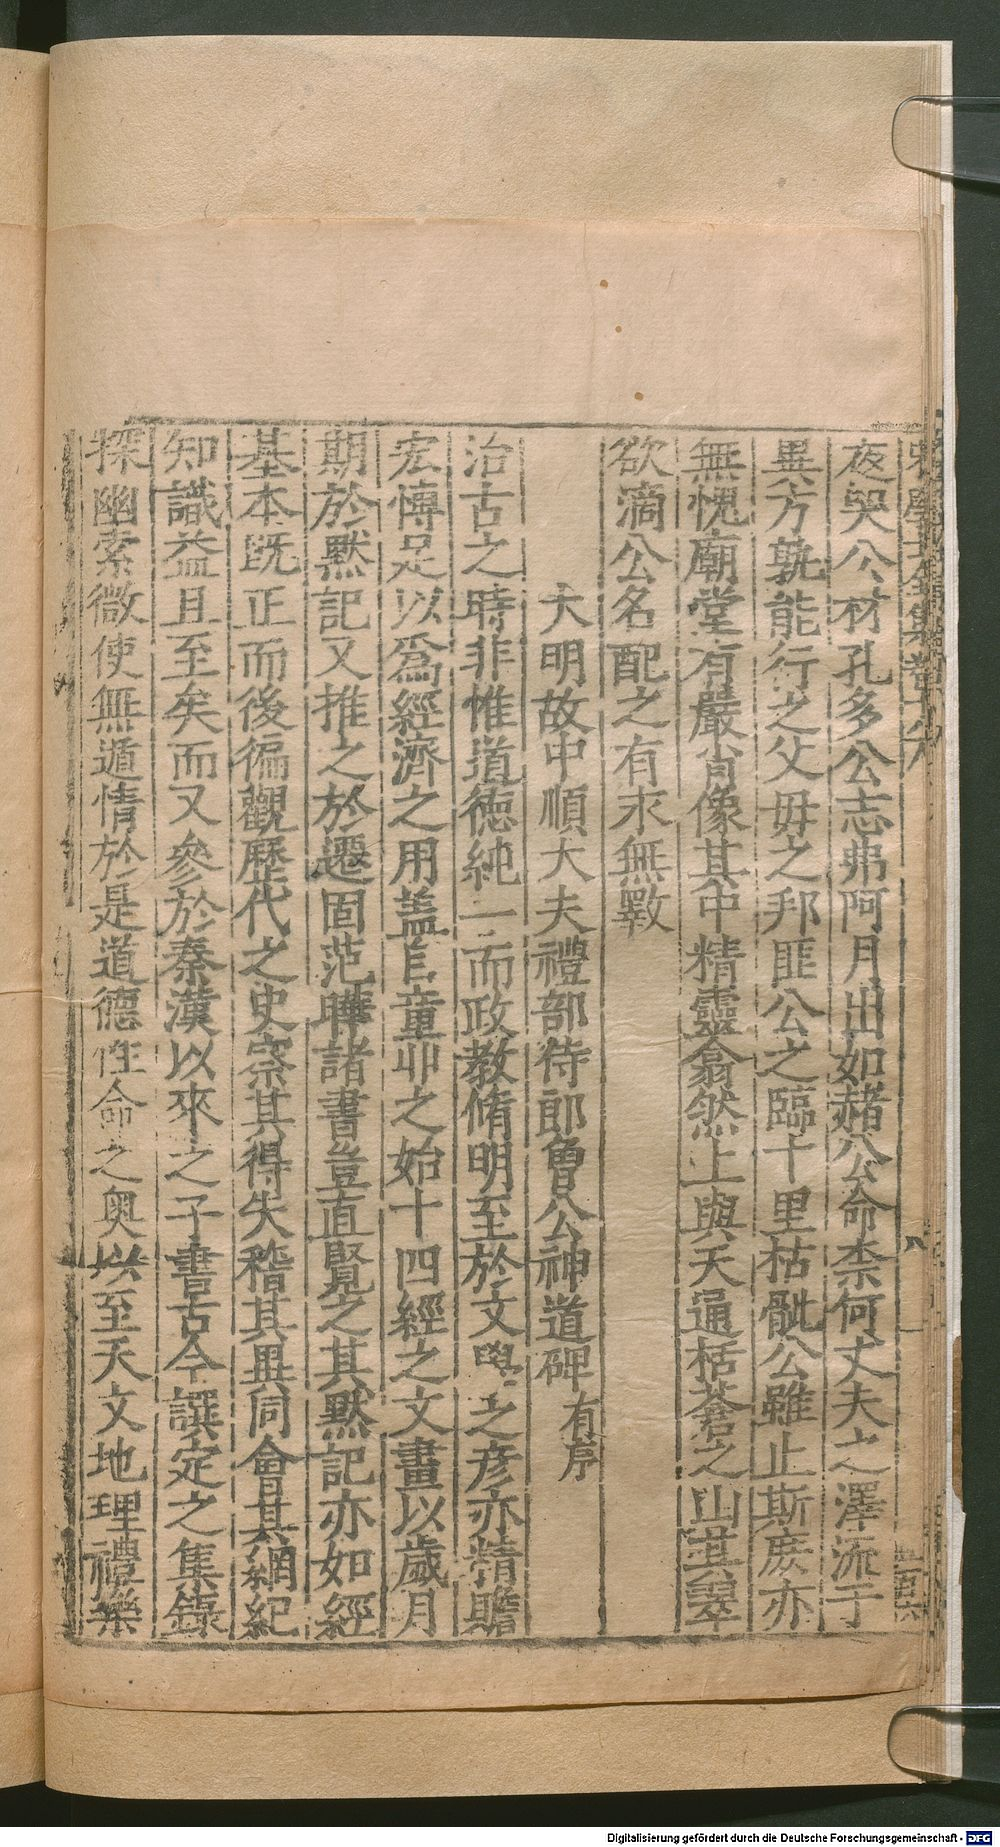 夜哭公材孔多公志弗阿月出如赭公命柰何丈夫之澤流于
異方孰能行之父毋之邦匪公之臨十里枯骴公雖止斯庻亦
無愧廟堂有嚴肖像其中精靈翕然上與天通栝蒼之山其翠
欲滴公名配之有永無斁
大明故中順大夫禮部侍郎曾公神道碑有序
治古之時非惟道徳純一而政教脩明至於文學之彦亦精贍
宏博足以爲經濟之用盖自童丱之始十四經之文畫以歲月
期於黙記又推之於遷固范曄諸書豈直覽之其黙記亦如經
基本既正而後徧觀歴代之史察其得失稽其異同會其綱紀
知識益且至矣而又參於秦漢以來之子書古今譔定之集錄
探幽索微使無遁情於是道德性命之奥以至天文地理禮樂
Digitalisierung gefördert durch die Deutsche Forschungsgemeinschaft - DFG